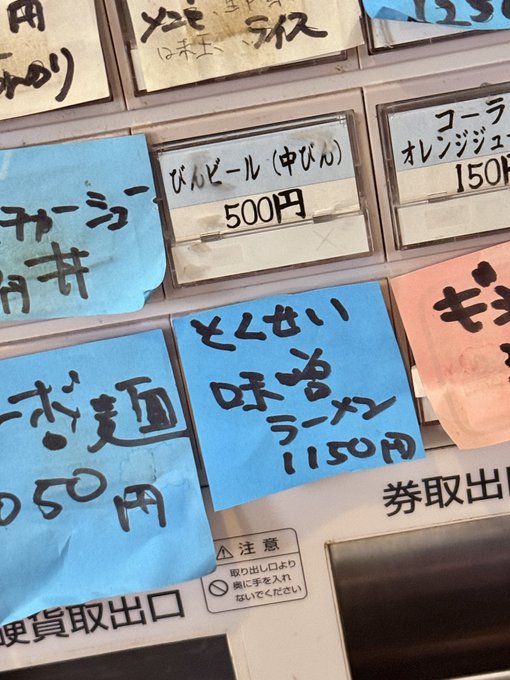 円
メンマ
味玉
ライス
びんビール（中びん）
500円
コーラ
オレンジジュ
150円
チャーシュー
丼
円
とくせい
味噌
ラーメン
1150円
ギ
ボ麺
050円
券取出
注意
取り出し口より
奥に手を入れ
ないでください
硬貨取出口